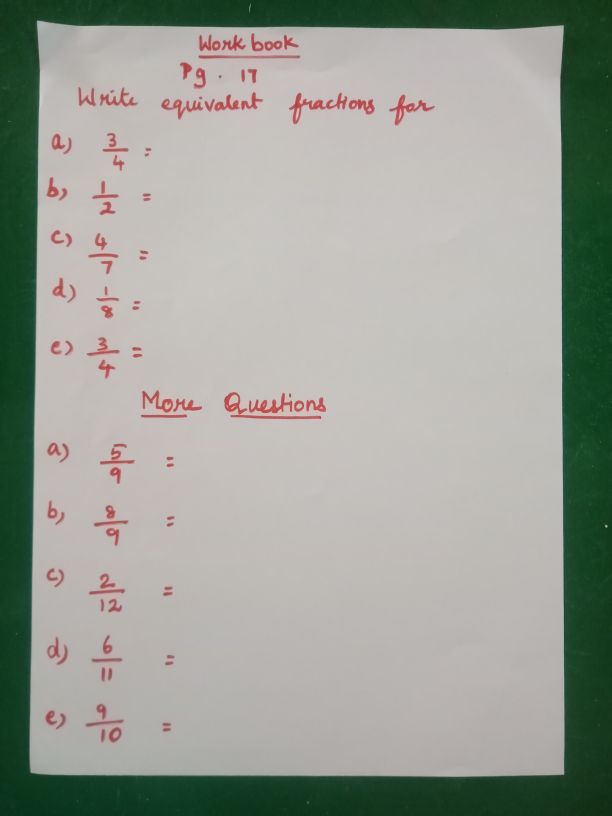 Work book
Pg. 17
Write equivalent fractions for
a) 3/4 =
b) 1/2 =
c) 4/7 =
d) 1/8 =
e) 3/4 =
More Questions
a) 5/9 =
b) 8/9 =
c) 2/12 =
d) 6/11 =
e) 9/10 =